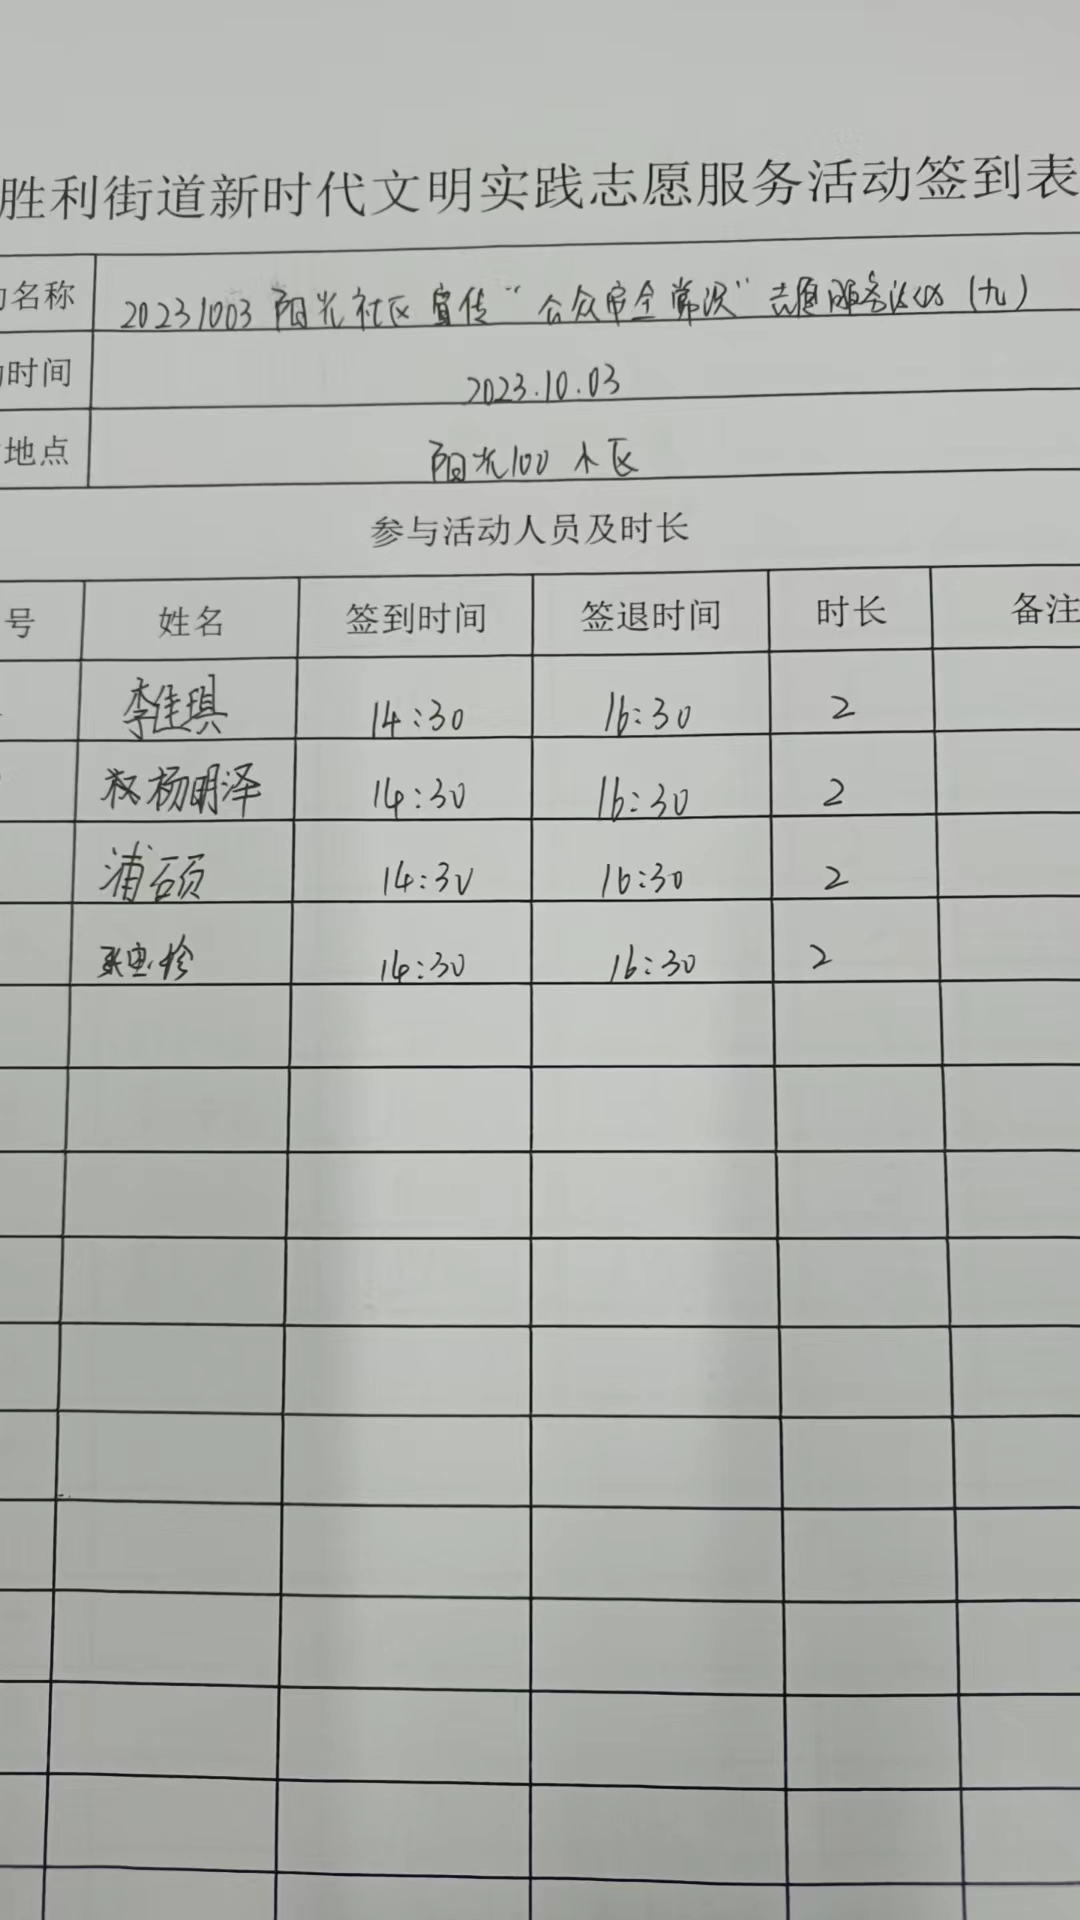 胜利街道新时代文明实践志愿服务活动签到表
名称 20231003 阳光社区宣传“公众安全常识”志愿服务活动（九）
时间 2023.10.03
地点 阳光100小区
参与活动人员及时长
号 姓名 签到时间 签退时间 时长 备注
李佳琪 14:30 16:30 2
权杨明泽 14:30 16:30 2
浦硕 14:30 16:30 2
14:30 16:30 2